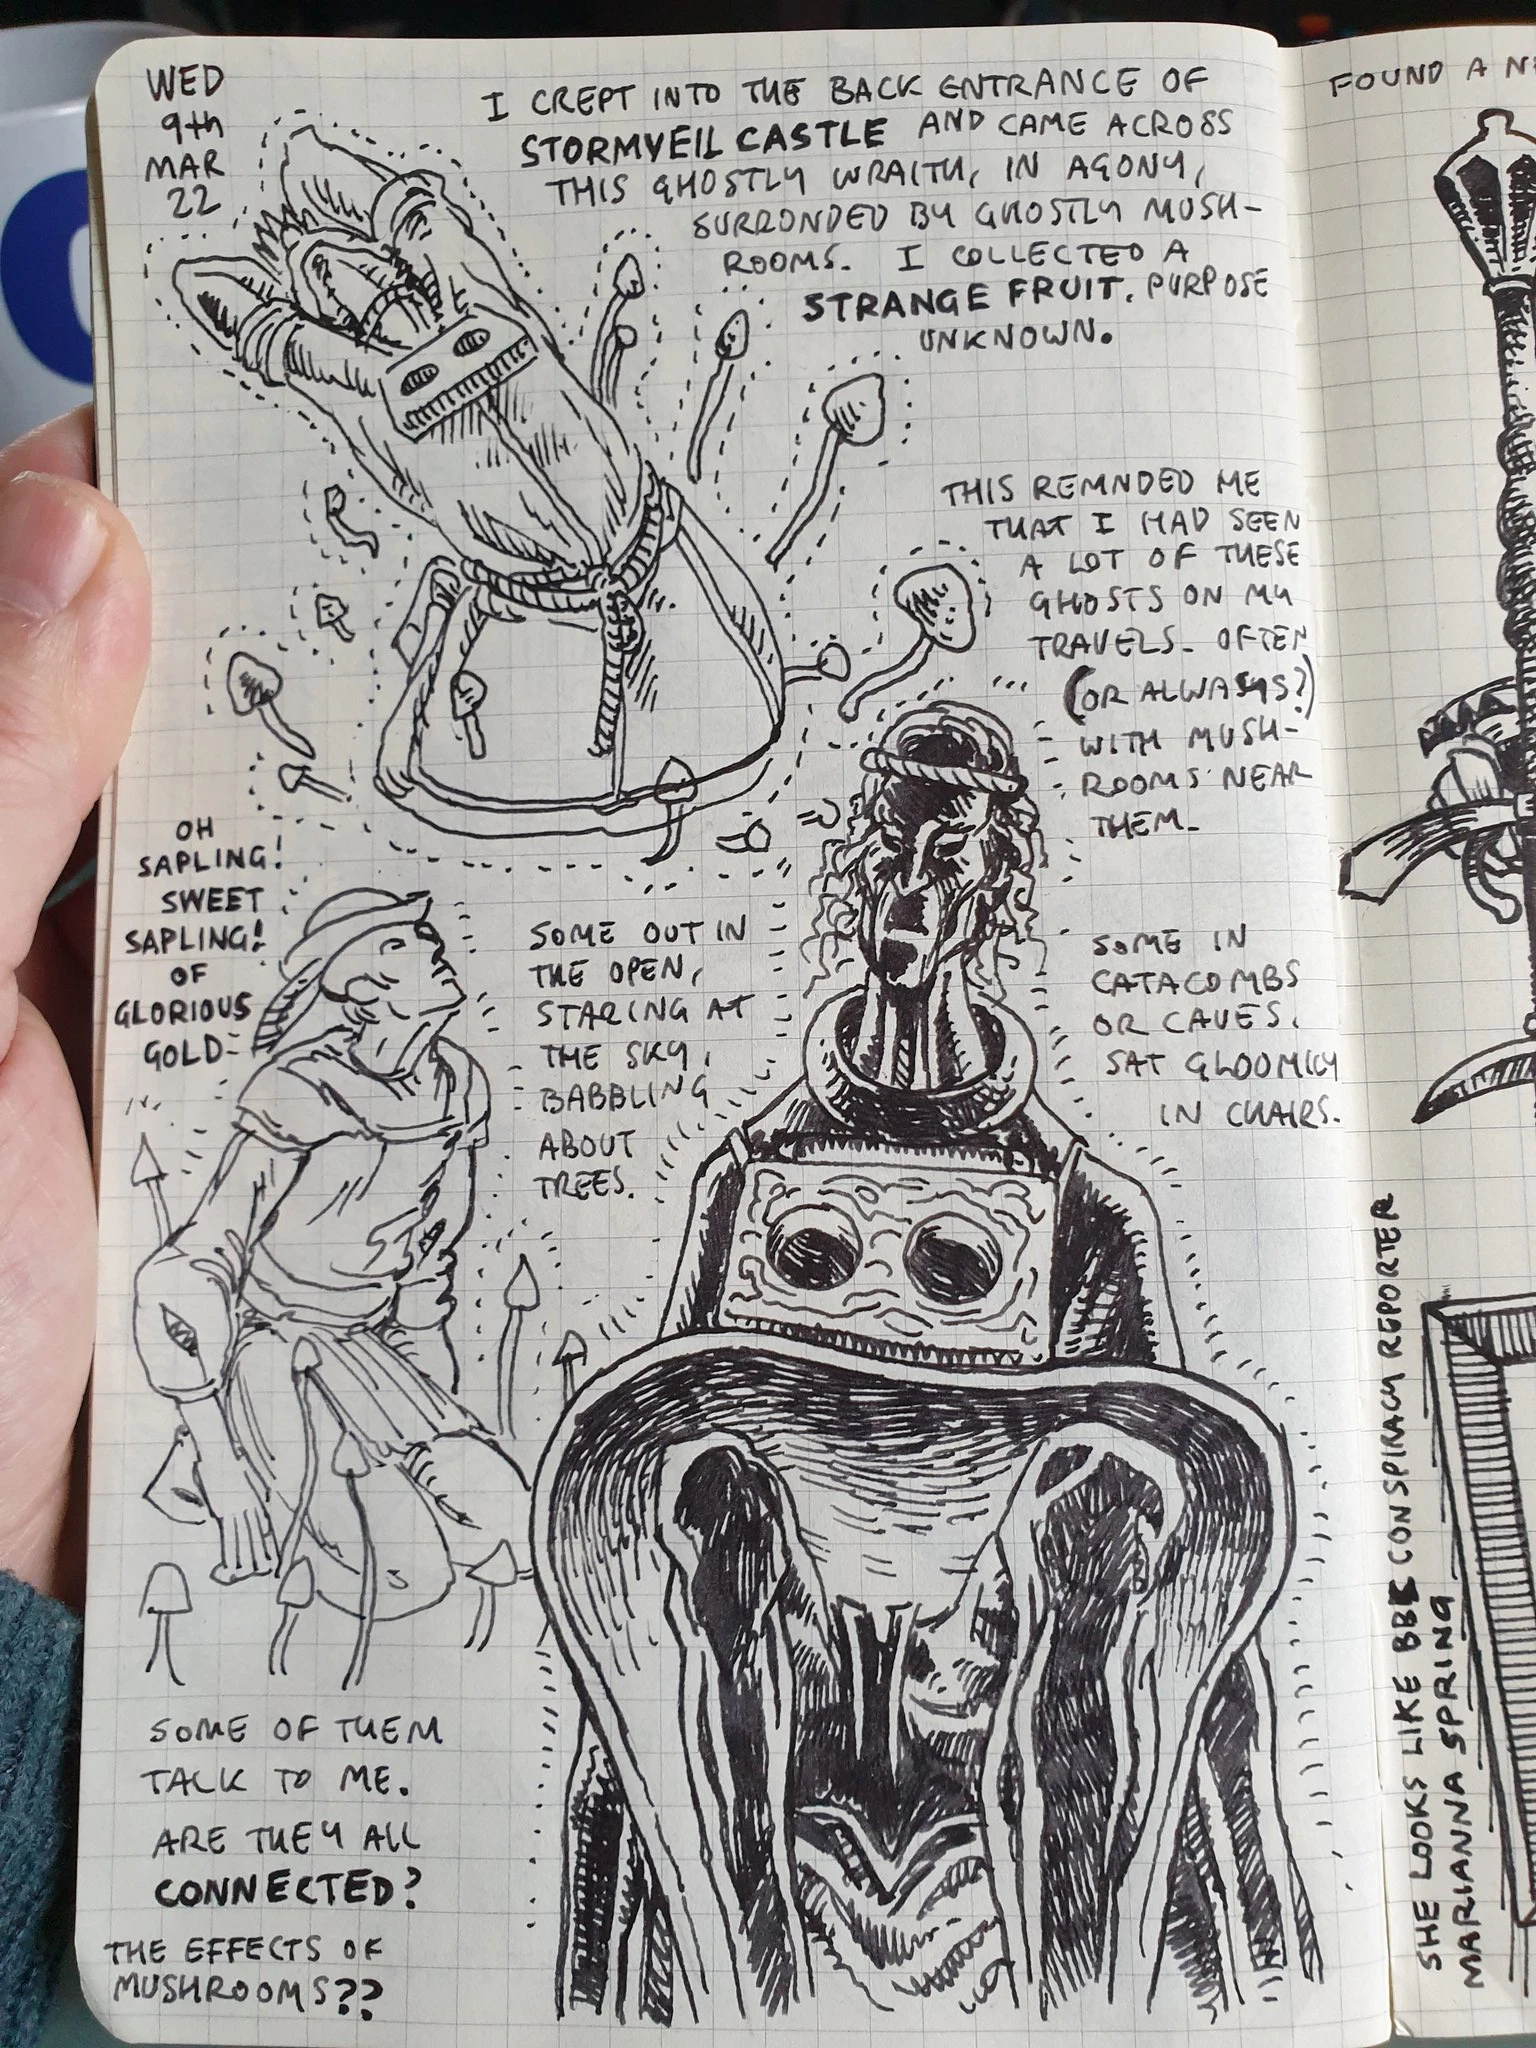 WED
9th
MAR
22
I CREPT INTO THE BACK ENTRANCE OF
STORMVEIL CASTLE AND CAME ACROSS
THIS GHOSTLY WRAITH, IN AGONY,
SURRONDED BY GHOSTLY MUSH-
ROOMS. I COLLECTED A
STRANGE FRUIT. PURPOSE
UNKNOWN.
THIS REMNDED ME
THAT I HAD SEEN
A LOT OF THESE
GHOSTS ON MY
TRAVELS. OFTEN
(OR ALWAYS?)
WITH MUSH-
ROOMS NEAR
THEM.
OH
SAPLING!
SWEET
SAPLING!
OF
GLORIOUS
GOLD-
SOME OUT IN
THE OPEN,
STARING AT
THE SKY,
BABBLING
ABOUT
TREES.
SOME IN
CATACOMBS
OR CAVES.
SAT GLOOMILY
IN CHAIRS.
SOME OF THEM
TALK TO ME.
ARE THEY ALL
CONNECTED?
THE EFFECTS OF
MUSHROOMS??
FOUND A
SHE LOOKS LIKE BBC CONSPIRACY REPORTER
MARIANNA SPRING